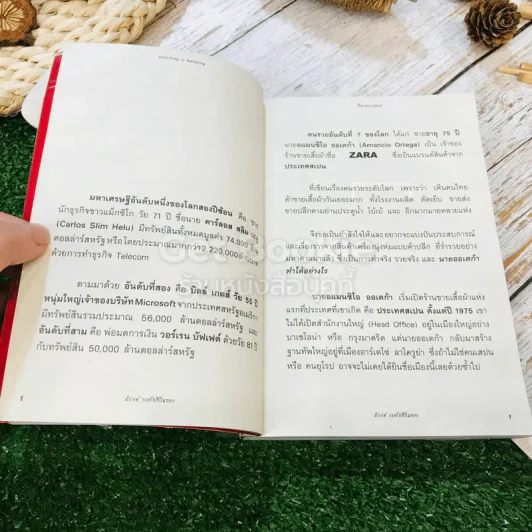 มหาเศรษฐีอันดับหนึ่งของโลกสองปีซ้อน คือ ชาย
นักธุรกิจชาวเม็กซิโก วัย 71 ปี ชื่อนาย คาร์ลอส สลิม เฮลู
(Carlos Slim Helu) มีทรัพย์สินทั้งหมดมูลค่า 74,000 ล้าน
ดอลล่าร์สหรัฐหรือโดยประมาณมากกว่า 2,220,000 ล้านบาท
ด้วยการทำธุรกิจ Telecom
ตามมาด้วย อันดับที่สอง คือ บิลล์ เกตส์ วัย 55 ปี
หนุ่มใหญ่เจ้าของบริษัท Microsoft จากประเทศสหรัฐอเมริกา
มีทรัพย์สินรวมประมาณ 56,000 ล้านดอลล่าร์สหรัฐ และ
อันดับที่สาม คือ พ่อมดการเงิน วอร์เรน บัฟเฟต์ ด้วยวัย 81 ปี
กับทรัพย์สิน 50,000 ล้านดอลล่าร์สหรัฐ
คนรวยอันดับที่ 7 ของโลก ได้แก่ ชายอายุ 75 ปี
นายอแมนซิโอ ออเตก้า (Amancio Ortega) เป็น เจ้าของ
ร้านขายเสื้อผ้าชื่อ ZARA ซึ่งเป็นแบรนด์สินค้าจาก
ประเทศสเปน
ที่เขียนเรื่องคนรวยระดับโลก เพราะว่า เห็นคนไทย
ค้าขายเสื้อผ้ากันเยอะมาก ทั้งโรงงานผลิต ตัดเย็บ ขายส่ง
ขายปลีกตามย่านประตูน้ำ โบ๊เบ๊ และ อีกมากมายหลายแห่ง
จึงขอเป็นกำลังใจให้และ อยากจะแบ่งปันประสบการณ์
และเรื่องราวจากสินค้าเครื่องนุ่งห่มแบบค้าปลีก ที่ร่ำรวยอย่าง
มหาศาลมาแล้ว ซึ่งเป็นการทำจริง รวยจริง และ นายออเตก้า
ทำได้อย่างไร
นายอแมนซิโอ ออเตก้า เริ่มเปิดร้านขายเสื้อผ้าแห่ง
แรกที่ประเทศที่เขาเกิด คือ ประเทศสเปน ตั้งแต่ปี 1975 เขา
ไม่ได้เปิดสำนักงานใหญ่ (Head Office) อยู่ในเมืองใหญ่อย่าง
บาเซโลน่า หรือ กรุงมาดริด แต่นายออเตก้า กลับมาสร้าง
ฐานทัพใหญ่อยู่ที่เมืองอาร์เตโซ่ ลาโครูย่า ซึ่งถ้าไม่ใช่คนเสปน
หรือ คนยุโรป อาจจะไม่เคยได้ยินชื่อเมืองนี้เลยด้วยซ้ำไป
ร้านหนังสือบุ๊คกี้